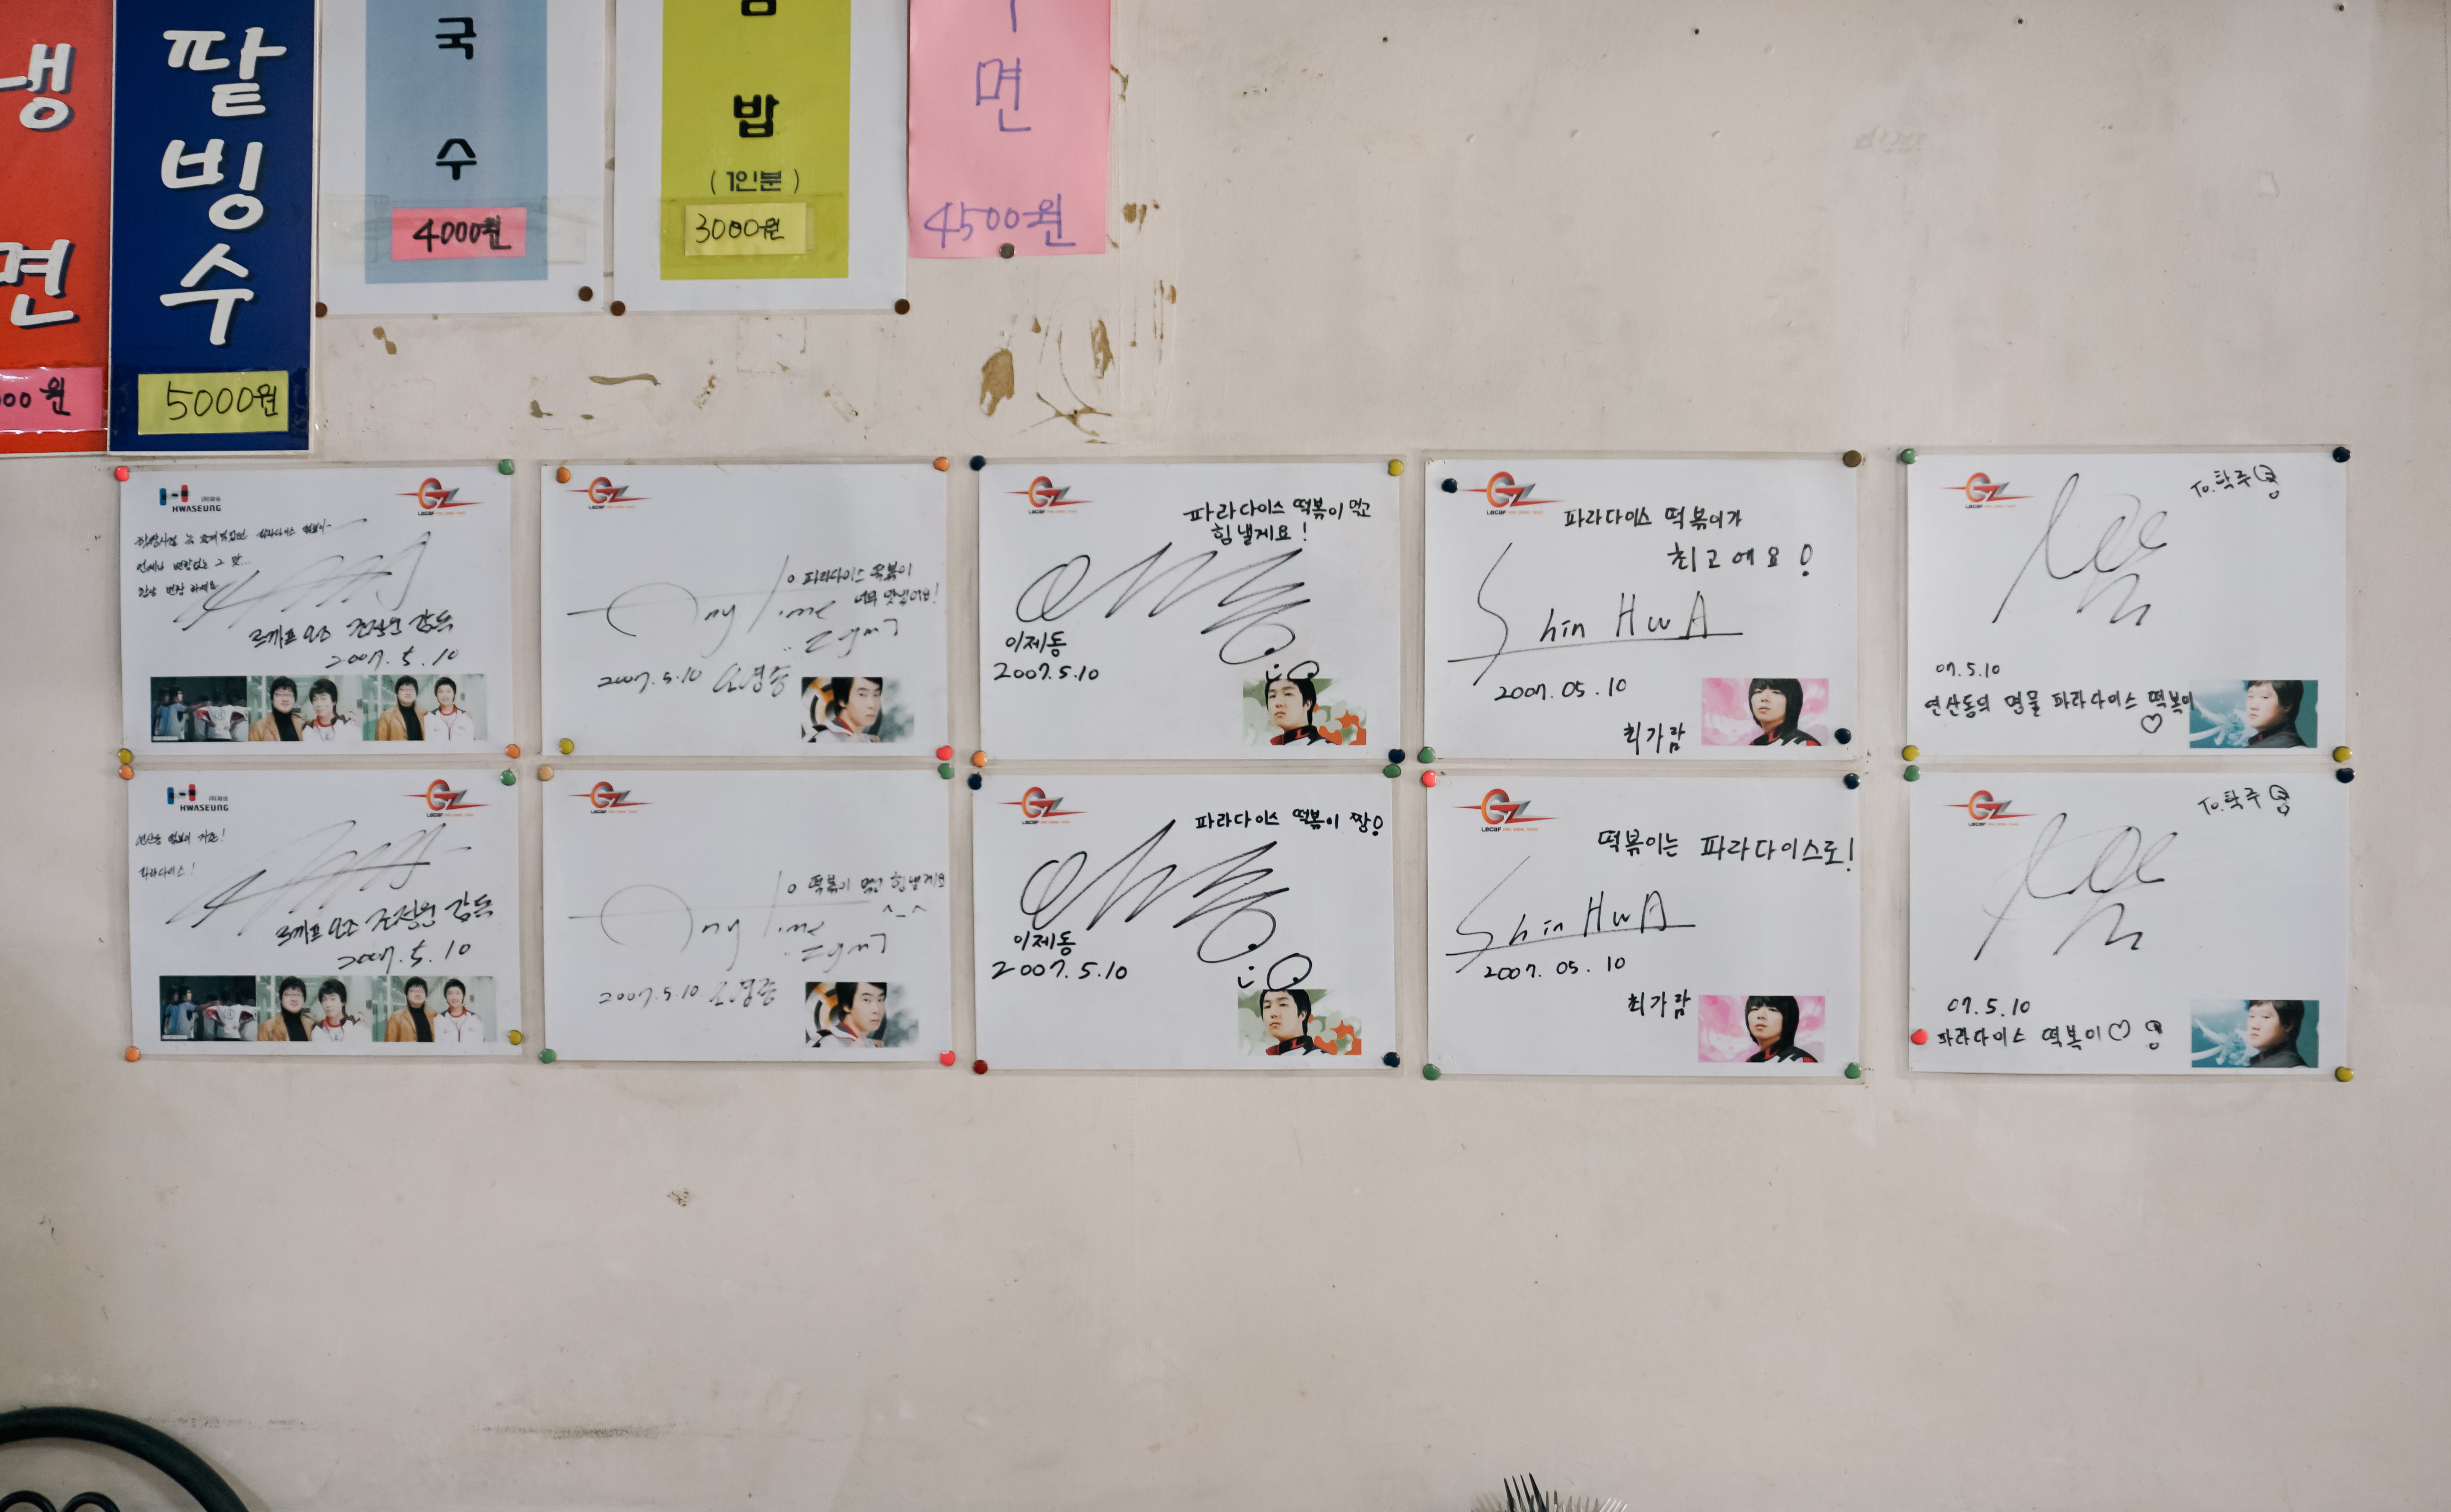 냉
면
00원
팥
빙
수
5000원
국
수
4000원
밥
(1인분)
3000원
면
4500원
HWASEUNG
GZ
언제나 변함없는 그 맛...
르까프 오즈 조정웅 감독
2007. 5. 10
GZ
파라다이스 떡볶이
너무 맛있어요!
Any Time
2007.5.10 오영종
GZ
파라다이스 떡볶이 먹고
힘낼게요!
이제동
2007.5.10
GZ
파라다이스 떡볶이가
최고에요!
Shin HwA
2007.05.10
최가람
GZ
To.탁주
07.5.10
연산동의 명물 파라다이스 떡볶이
♡
HWASEUNG
GZ
연산동 떡볶이 지존!
파라다이스!
르까프 오즈 조정웅 감독
2007. 5. 10
GZ
떡볶이 먹고 힘낼게요
^_^
Any Time
2007.5.10 오영종
GZ
파라다이스 떡볶이 짱!
이제동
2007.5.10
GZ
떡볶이는 파라다이스로!
Shin HwA
2007.05.10
최가람
GZ
To.탁주
07.5.10
파라다이스 떡볶이♡